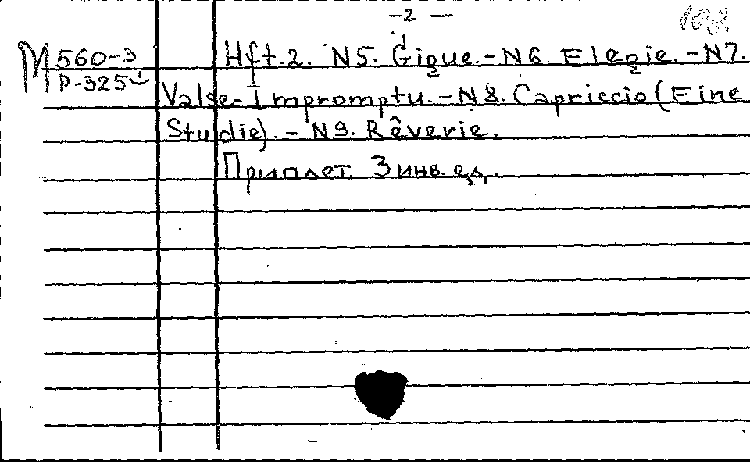 -2-
М 560-3
Р-325
Hft.2. N5. Gigue.-N6 Elegie.-N7.
Valse-Impromptu.-N8. Capriccio (Eine
Studie).-N9. Rêverie.
Приплет. 3 инв. ед.